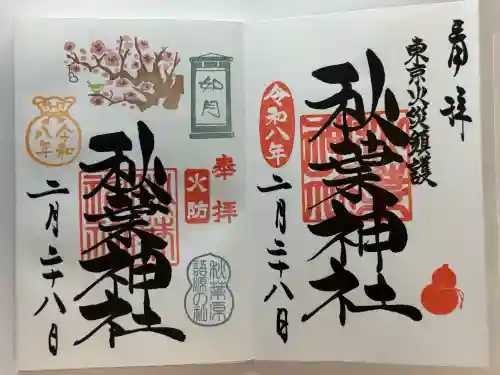 奉拝
東京火災鎮護
令和八年
秋葉神社
二月二十八日
如月
奉拝
火防
秋葉神社
令和八年
二月二十八日
秋葉原
語源の社